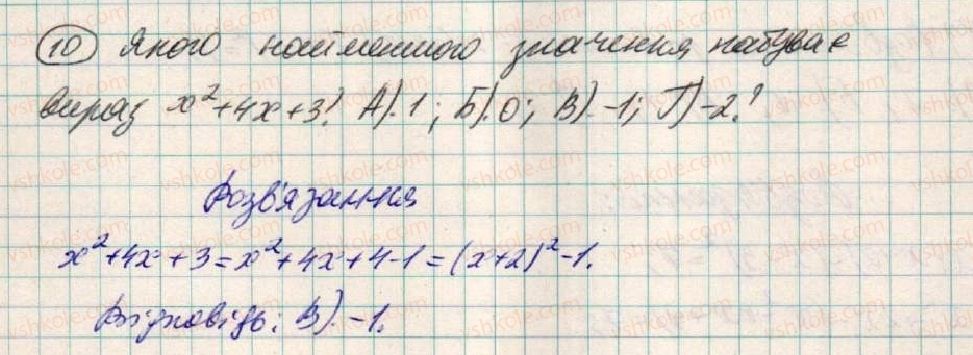 10 Якого найменшого значення набуває
вираз x²+4x+3? А). 1; Б). 0; В). -1; Г) -2?
Розв'язання
x²+4x+3=x²+4x+4-1=(x+2)²-1.
Відповідь: В). -1.